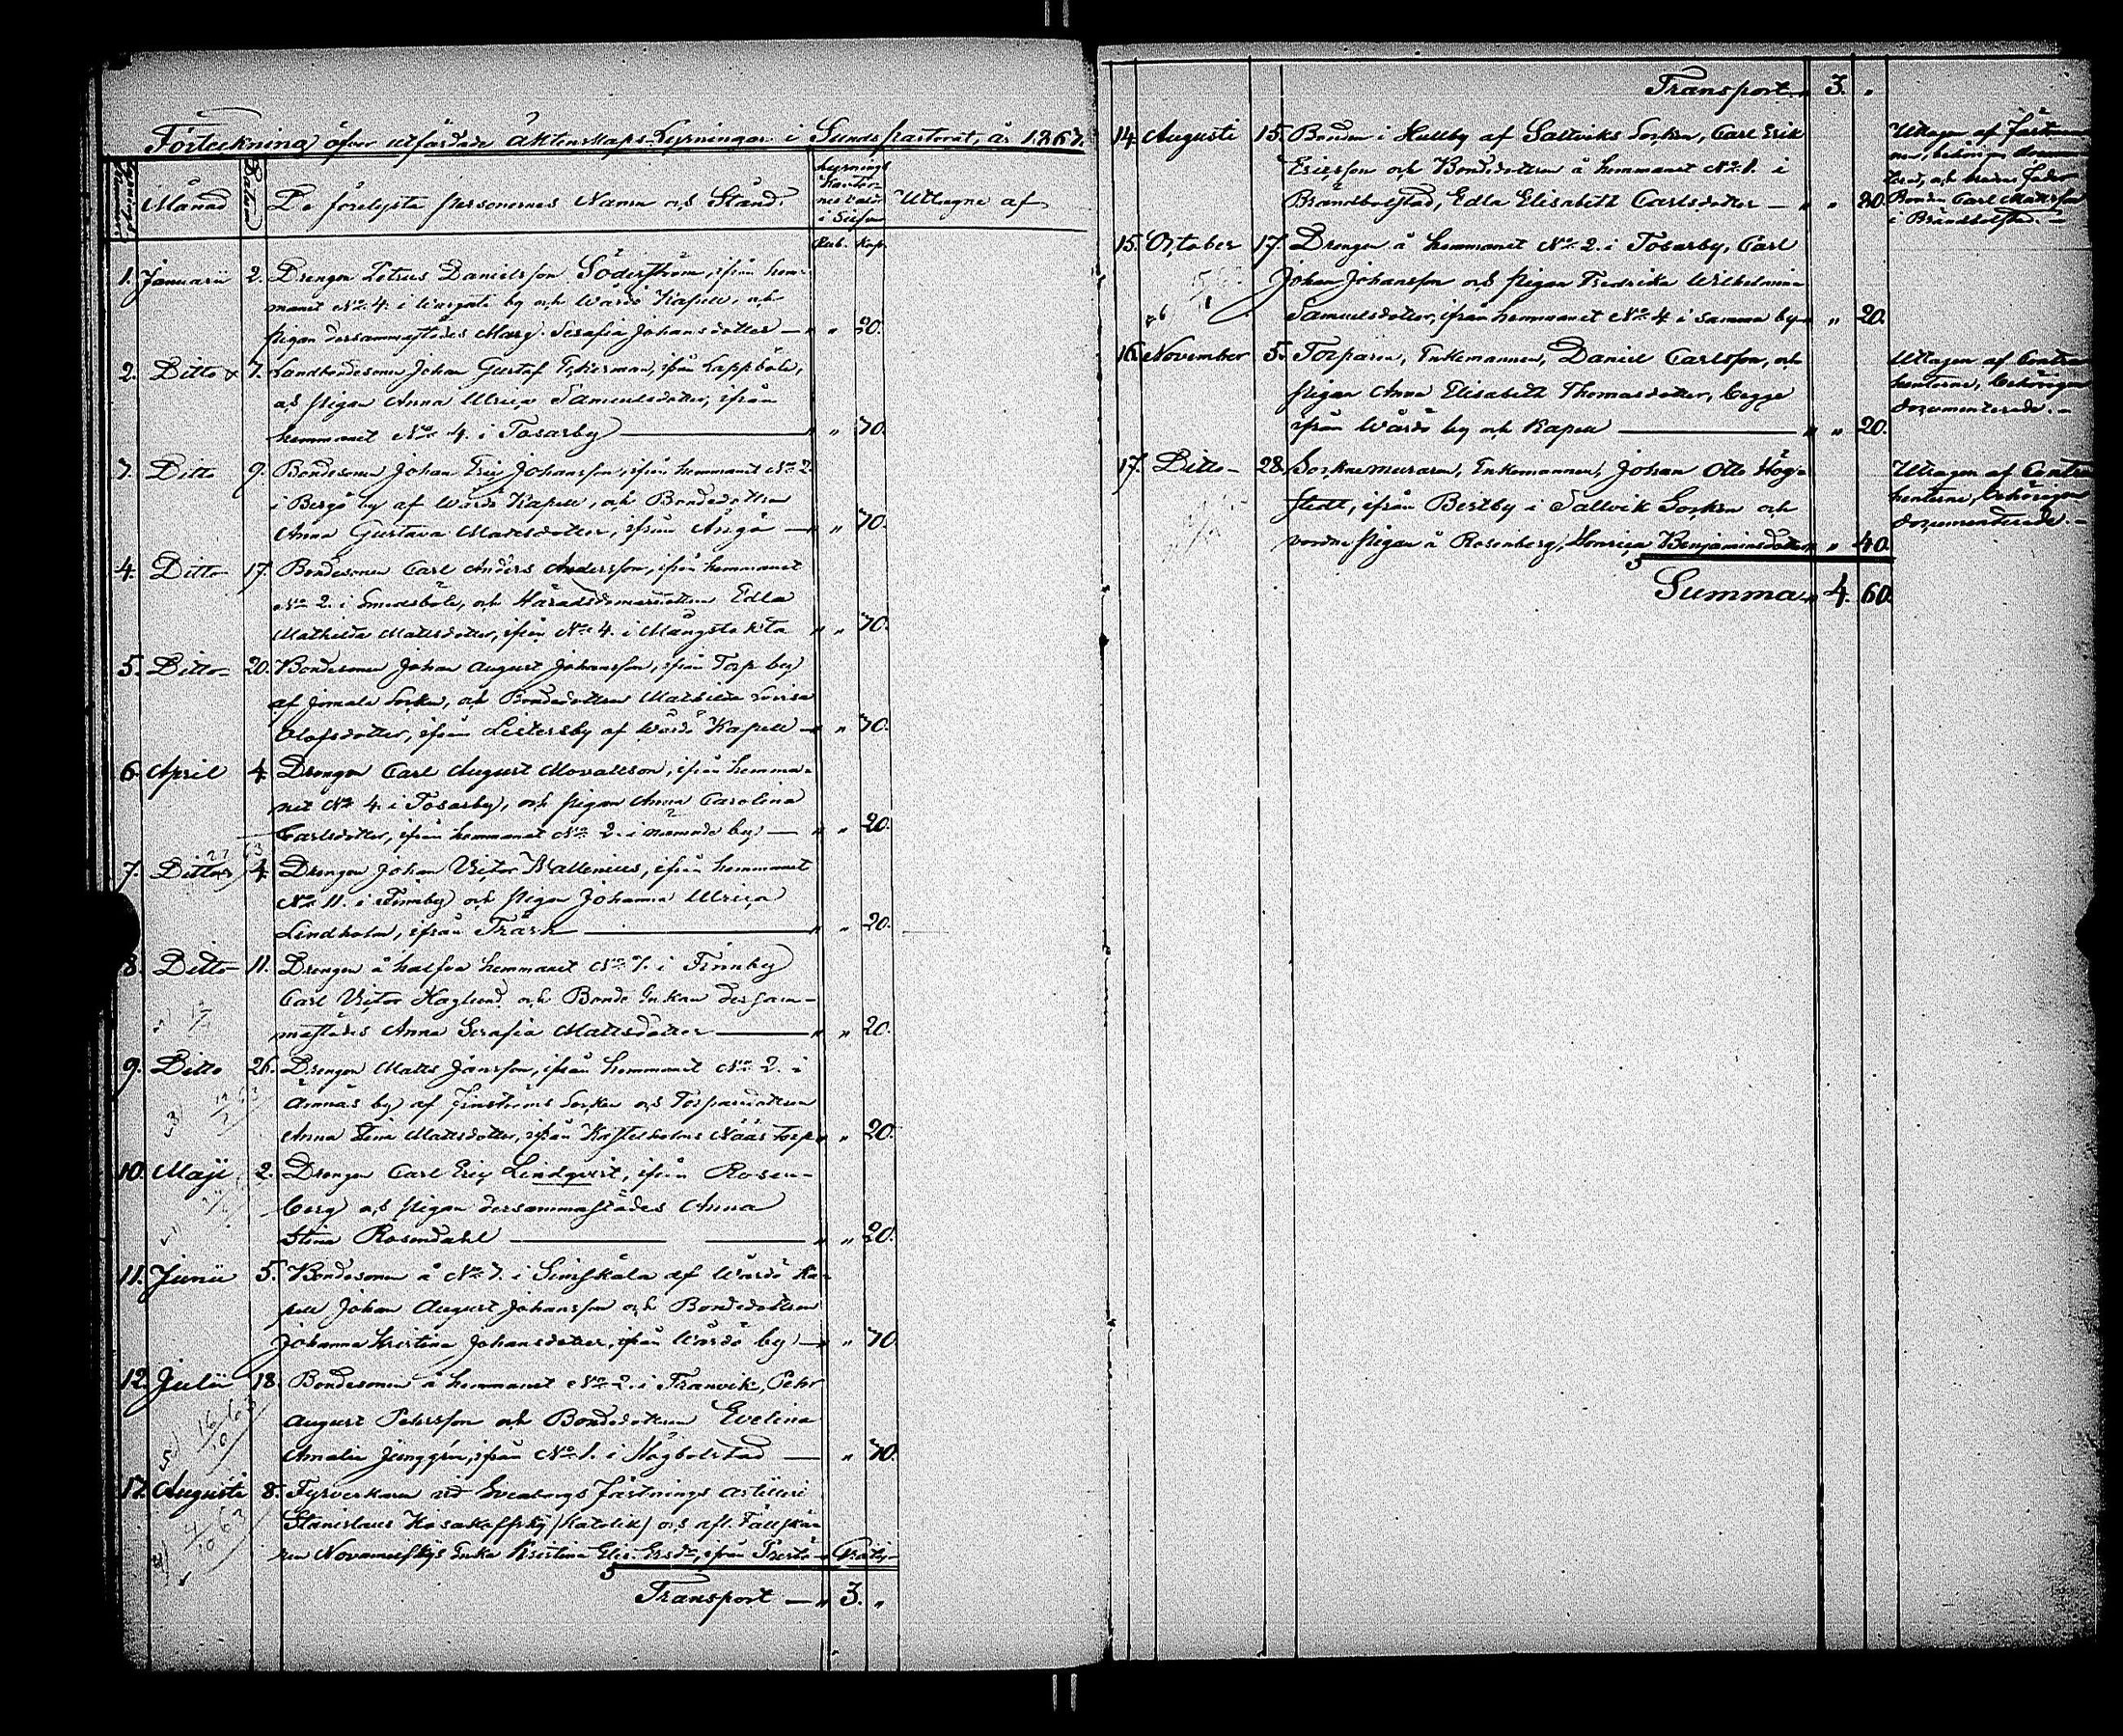 Förteckning öfver utfärdade äktenskaps-Lysningar i Sunds pastorat, år 1863.
Månad
Datum
De förelysta personernes Namn och Stånd.
Uttagne af
Rub. Kop.
1. Januarii 2. Drengen Petrus Danielsson Söderström, ifrån hem-
manet No 4. i Wargata by och Wårdö Kapell, och
pigan dersammastädes Marg. Serafia Johansdotter — " " 20.
2. Ditto 7. Landbondesonen Johan Gustaf Eckerman, ifrån Lappböle,
och pigan Anna Ulrica Samuelsdotter, ifrån
hemmanet No 4. i Tosarby — " " 70.
Ditto 9. Bondesonen Johan Eric Johansson, ifrån hemmanet No 2
i Bergö by af Wårdö Kapell, och Bondedottren
Anna Gustava Mattsdotter, ifrån Ängö — " " 70.
4. Ditto 17. Bondesonen Carl Anders Andersson, ifrån hemmanet
No 2. i Smedsböle, och Häradsdomaredottren Edla
Mathilda Mattsdotter, ifrån No 4. i Mångstekta " " 70.
5. Ditto 20. Bondesonen Johan August Johansson, ifrån Torp by
af Jomala Socken, och Bondedottren Mathilda Lovisa
Olofsdotter, ifrån Listersby af Wårdö Kapell — " 70.
6. April 4. Drengen Carl August , ifrån hemma-
net No 4. i Tosarby, och pigan Anna Carolina
Carlsdotter, ifrån hemmanet No 2. i nämnde by — " " 20.
7. Ditto 4. Drengen Johan Victor Wallenius, ifrån hemmanet
No 11. i Finnby och pigan Johanna Ulrica
Lindholm, ifrån Träsk — " " 20.
8. Ditto 11. Drengen å halfva hemmanet No 7. i Finnby
Carl Victor Haglund och Bonde Enkan dersam-
mastädes Anna Serafia Mattsdotter — " " 20.
9. Ditto 26. Drengen Matts Jansson, ifrån hemmanet No 2. i
Ämnäs by af Finströms Socken och Torparedottren
Anna Stina Mattsdotter, ifrån Kastelholms Näås Torp " " 20.
10. Maji 2. Drengen Carl Eric Lindqvist, ifrån Rosen-
berg och pigan dersammastädes Anna
Stina Rosendahl — " " 20.
11. Junii 5. Bondesonen å No 7. i Simskäla af Wårdö Ka-
pell Johan August Johansson och Bondedottren
Johanna Kristina Johansdotter, ifrån Wårdö by — " 70
12. Julii 18. Bondesonen å hemmanet No 2. i Tranvik, Pehr
August Pehrsson och Bondedottren Evelina
Amalia Ljunggrén, ifrån No 1. i Högbolstad — " 70.
Augusti 8. Fyrverkaren vid Sveaborgs Fästnings Artilleri
Stanislaus (Katolik) och afl. Fältskä-
ren Enka Kristina Elis. Ersdr, ifrån Prestö Gratis
Transport — " 3. "
Transport " 3. "
14. Augusti 15. Bonden i Hullby af Saltviks Socken, Carl Erik
Ericsson och Bondedottren å hemmanet No 1. i
Brändbolstad, Edla Elisabeth Carlsdotter — " " 80.
Uttagen af Fästman-
nen, behörigen documen-
terad, och brudens fader
Bonden Carl Mattsson
i Brändbolstad. —
15. October 17. Drengen å hemmanet No 2. i Tosarby, Carl
Johan Johansson och pigan Fredrika Wilhelmina
Samuelsdotter, ifrån hemmanet No 4 i samma by " " 20.
16. November 5. Torparen, Enkemannen, Daniel Carlsson, och
pigan Anna Elisabeth Thomasdotter, begge
ifrån Wårdö by och Kapell — " " 20.
Uttagen af Contra-
henterne, behörigen
documenterade. —
17. Ditto — 28. Socknemuraren, Enkemannen, Johan Otto Hög-
stedt, ifrån Bertby i Saltvik Socken och
vordne pigan å Rosenberg, Henrica Benjaminsdotter " " 40.
Uttagen af Contra-
henterne, behörigen
documenterade. —
Summa " 4. 60.